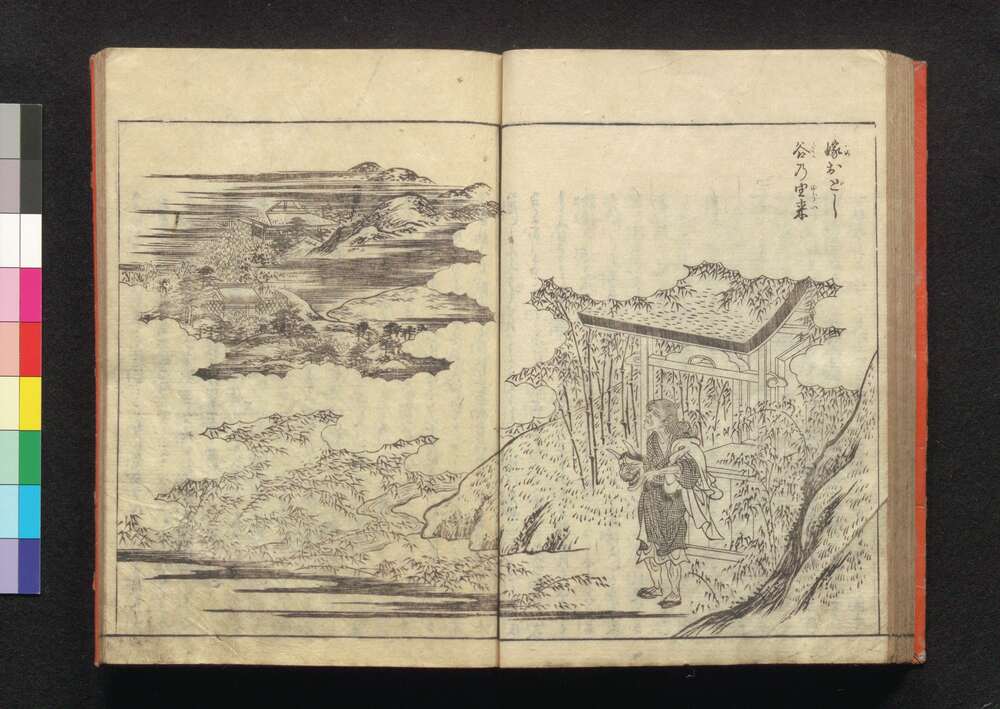 嫁おどし
谷乃由来